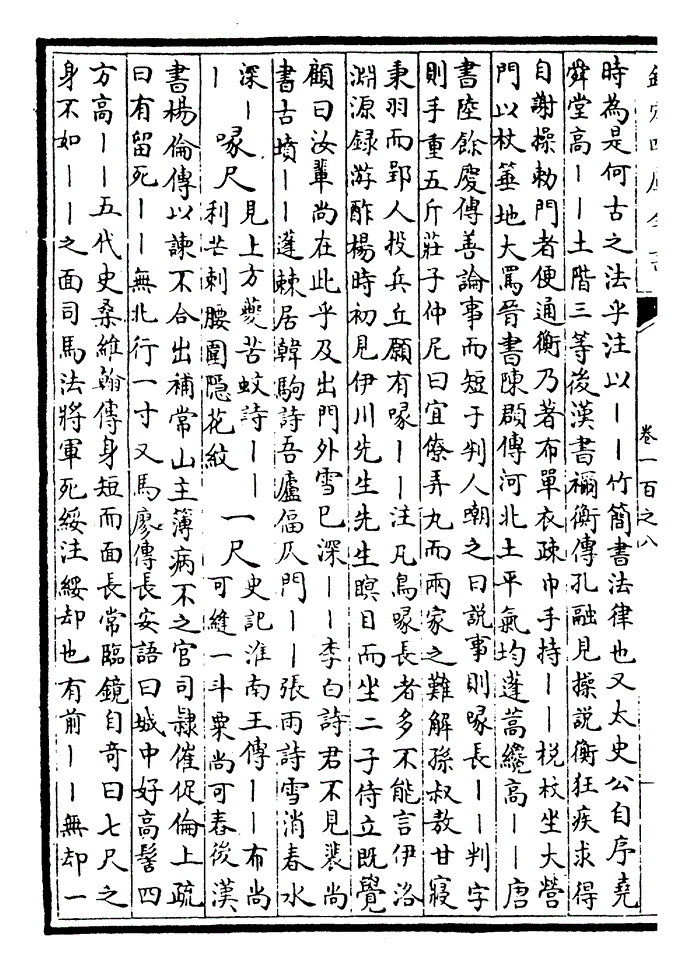 欽定四庫全書
卷一百之八
時為是何古之法乎注以丨丨竹簡書法律也又太史公自序堯
舜堂高丨丨土階三等後漢書禰衡傳孔融見操說衡狂疾求得
自謝操勅門者便通衡乃著布單衣疎巾手持丨丨棁杖坐大營
門以杖箠地大罵晉書陳頵傳河北土平氣均蓬蒿纔高丨丨唐
書陸餘慶傳善論事而短于判人嘲之曰說事則喙長丨丨判字
則手重五斤莊子仲尼曰宜僚弄丸而兩家之難解孫叔敖甘寢
秉羽而郢人投兵丘願有喙丨丨注凡鳥喙長者多不能言伊洛
淵源録游酢楊時初見伊川先生先生瞑目而坐二子侍立既覺
顧曰汝輩尚在此乎及出門外雪已深丨丨李白詩君不見裴尚
書古墳丨丨蓬棘居韓駒詩吾廬偪仄門丨丨張雨詩雪消春水
深丨
丨
喙尺
見上方夔苦蚊詩丨丨
利芒刺腰圍隠花紋
一尺
史記淮南王傳丨丨布尚
可縫一斗粟尚可舂後漢
書楊倫傳以諫不合出補常山主簿病不之官司隷催促倫上疏
曰有留死丨丨無北行一寸又馬廖傳長安語曰城中好高髻四
方高丨丨五代史桑維翰傳身短而面長常臨鏡自奇曰七尺之
身不如丨丨之面司馬法將軍死綏注綏却也有前丨丨無却一